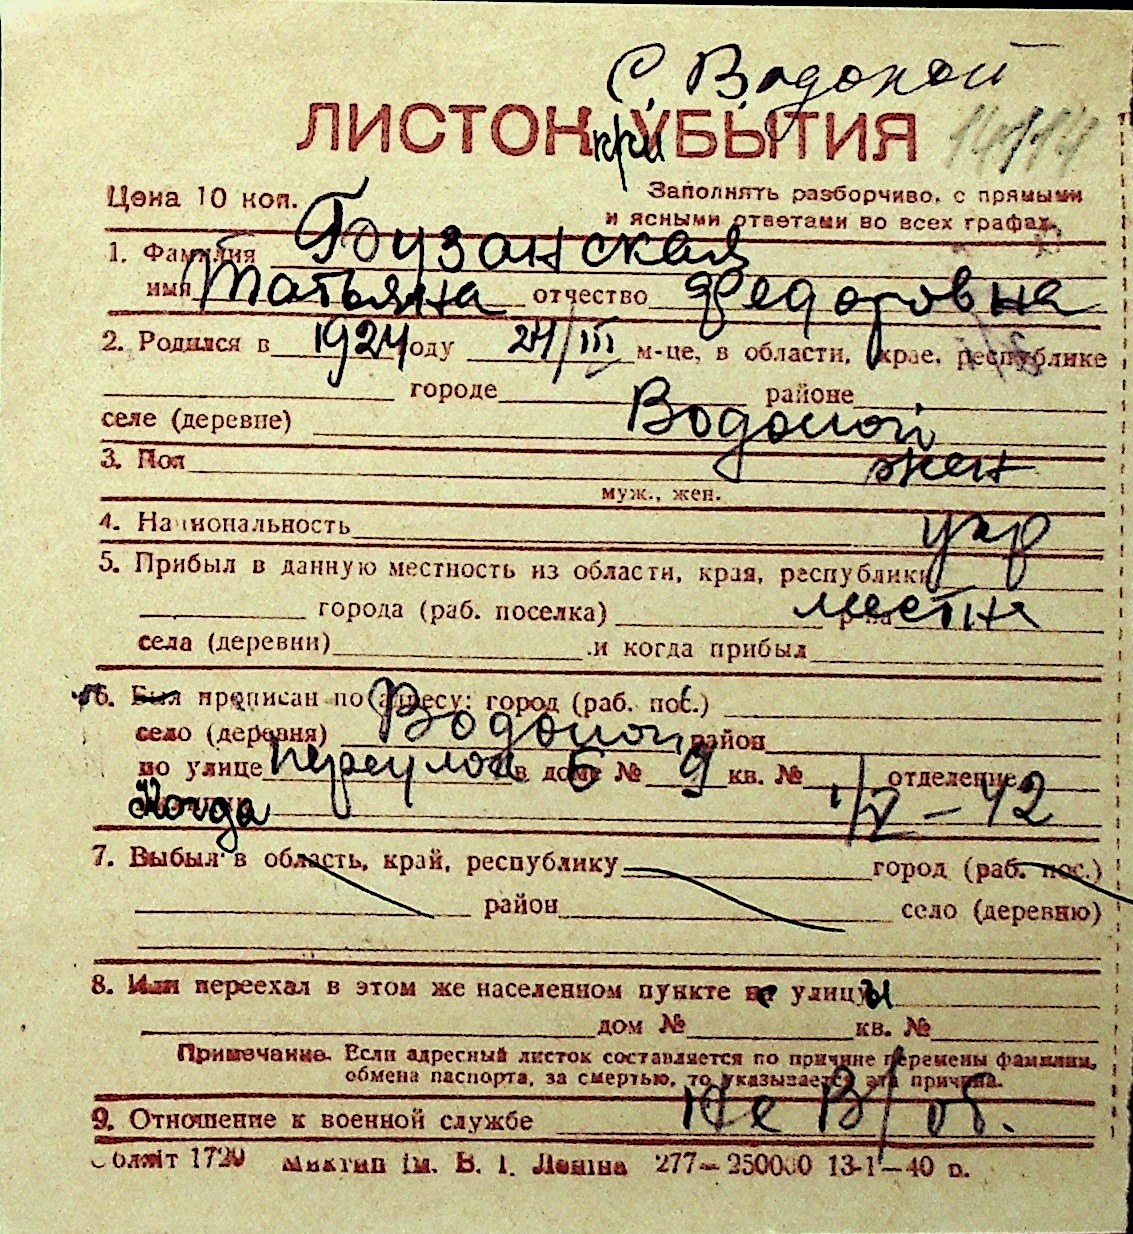 С. Водопой
ЛИСТОК при УБЫТИЯ 14114
Цена 10 коп. Заполнять разборчиво, с прямыми
и ясными ответами во всех графах.
1. Фамилия Бузанская
имя Татьяна отчество Федоровна
2. Родился в 1924 году 24/III м-це, в области, крае, республике
городе районе
селе (деревне) Водопой
3. Пол жен
муж., жен.
4. Национальность укр
5. Прибыл в данную местность из области, края, республики
города (раб. поселка) р-на местн
села (деревни) и когда прибыл
6. Был прописан по адресу: город (раб. пос.)
село (деревня) Водопой район
по улице переулок Б в доме № 9 кв. № отделение
Когда 1/V – 42
7. Выбыл в область, край, республику город (раб. пос.)
район село (деревню)
8. Или переехал в этом же населенном пункте с улицы
дом № кв. №
Примечание. Если адресный листок составляется по причине перемены фамилии,
обмена паспорта, за смертью, то указывается эта причина.
9. Отношение к военной службе Не в/об.
Облліт 1729 Миктип ім. В. І. Леніна 277—250000 13-1—40 р.